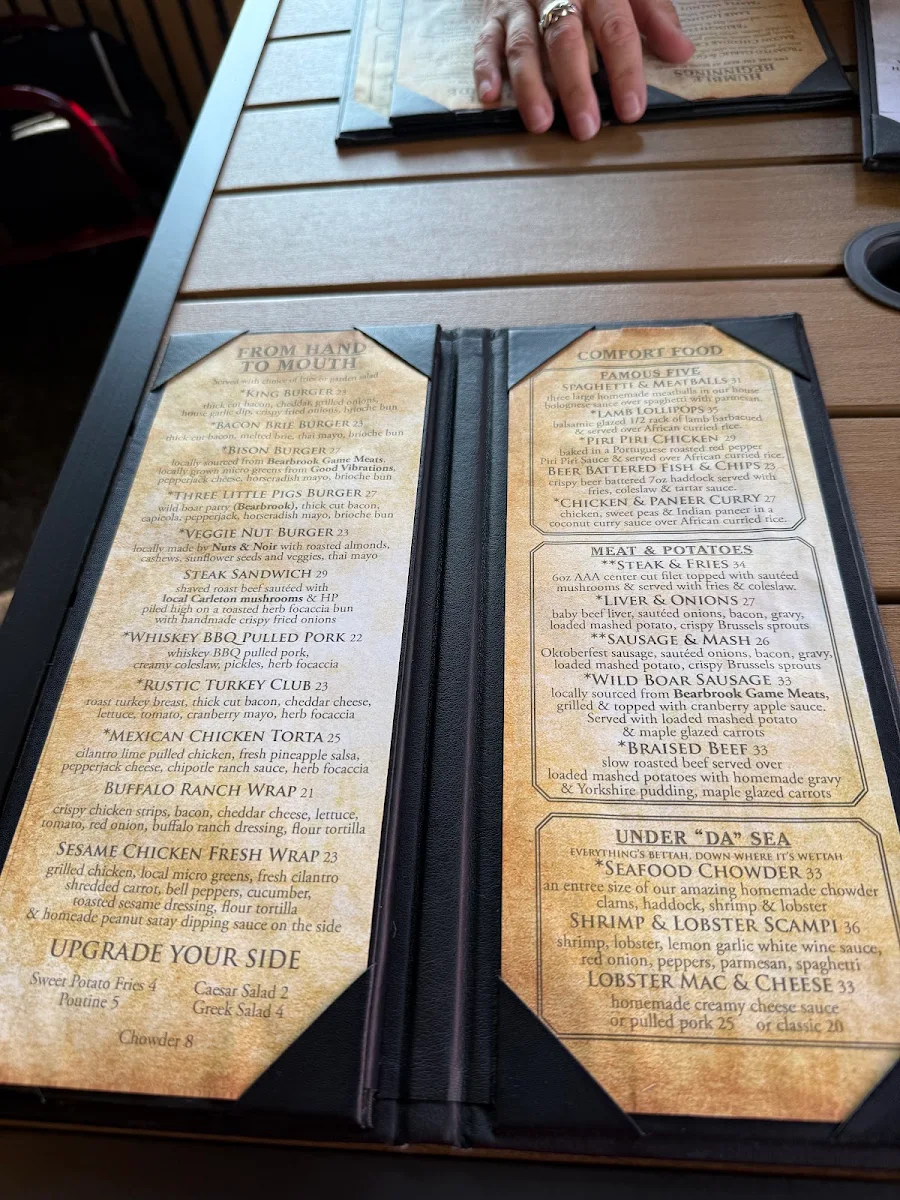 HUMBLE
BEGINNINGS
FROM HAND
TO MOUTH
Served with choice of fries or garden salad
*KING BURGER 23
thick cut bacon, cheddar, grilled onions,
house garlic dips crispy fried onions, brioche bun
*BACON BRIE BURGER 23
thick cut bacon, melted brie, thai mayo, brioche bun
*BISON BURGER 27
locally sourced from Bearbrook Game Meats,
locally grown micro greens from Good Vibrations,
pepperjack cheese, horseradish mayo, brioche bun
*THREE LITTLE PIGS BURGER 27
wild boar patty (Bearbrook), thick cut bacon,
capicola, pepperjack, horseradish mayo, brioche bun
*VEGGIE NUT BURGER 23
locally made by Nuts & Noir with roasted almonds,
cashews, sunflower seeds and veggies, thai mayo
STEAK SANDWICH 29
shaved roast beef sautéed with
local Carleton mushrooms & HP
piled high on a toasted herb focaccia bun
with handmade crispy fried onions
*WHISKEY BBQ PULLED PORK 22
whiskey BBQ pulled pork,
creamy coleslaw, pickles, herb focaccia
*RUSTIC TURKEY CLUB 23
roast turkey breast, thick cut bacon, cheddar cheese,
lettuce, tomato, cranberry mayo, herb focaccia
*MEXICAN CHICKEN TORTA 25
cilantro lime pulled chicken, fresh pineapple salsa,
pepperjack cheese, chipotle ranch sauce, herb focaccia
BUFFALO RANCH WRAP 21
crispy chicken strips, bacon, cheddar cheese, lettuce,
tomato, red onion, buffalo ranch dressing, flour tortilla
SESAME CHICKEN FRESH WRAP 23
grilled chicken, local micro greens, fresh cilantro
shredded carrot, bell peppers, cucumber,
toasted sesame dressing, flour tortilla
& homeade peanut satay dipping sauce on the side
UPGRADE YOUR SIDE
Sweet Potato Fries 4 Caesar Salad 2
Poutine 5 Greek Salad 4
Chowder 8
COMFORT FOOD
FAMOUS FIVE
SPAGHETTI & MEATBALLS 31
three large homemade meatballs in our house
bolognese sauce over spaghetti with parmesan.
*LAMB LOLLIPOPS 35
balsamic glazed 1/2 rack of lamb barbacued
& served over African curried rice.
*PIRI PIRI CHICKEN 29
baked in a Portuguese roasted red pepper
Piri Piri Sauce & served over African curried rice.
BEER BATTERED FISH & CHIPS 23
crispy beer battered 7oz haddock served with
fries, coleslaw & tartar sauce.
*CHICKEN & PANEER CURRY 27
chicken, sweet peas & Indian paneer in a
coconut curry sauce over African curried rice.
MEAT & POTATOES
**STEAK & FRIES 34
6oz AAA center cut filet topped with sautéed
mushrooms & served with fries & coleslaw.
*LIVER & ONIONS 27
baby beef liver, sautéed onions, bacon, gravy,
loaded mashed potato, crispy Brussels sprouts
**SAUSAGE & MASH 26
Oktoberfest sausage, sautéed onions, bacon, gravy,
loaded mashed potato, crispy Brussels sprouts
*WILD BOAR SAUSAGE 33
locally sourced from Bearbrook Game Meats,
grilled & topped with cranberry apple sauce.
Served with loaded mashed potato
& maple glazed carrots
*BRAISED BEEF 33
slow roasted beef served over
loaded mashed potatoes with homemade gravy
& Yorkshire pudding, maple glazed carrots
UNDER "DA" SEA
EVERYTHING'S BETTAH, DOWN WHERE IT'S WETTAH
*SEAFOOD CHOWDER 33
an entree size of our amazing homemade chowder
clams, haddock, shrimp & lobster
SHRIMP & LOBSTER SCAMPI 36
shrimp, lobster, lemon garlic white wine sauce,
red onion, peppers, parmesan, spaghetti
LOBSTER MAC & CHEESE 33
homemade creamy cheese sauce
or pulled pork 25 or classic 20